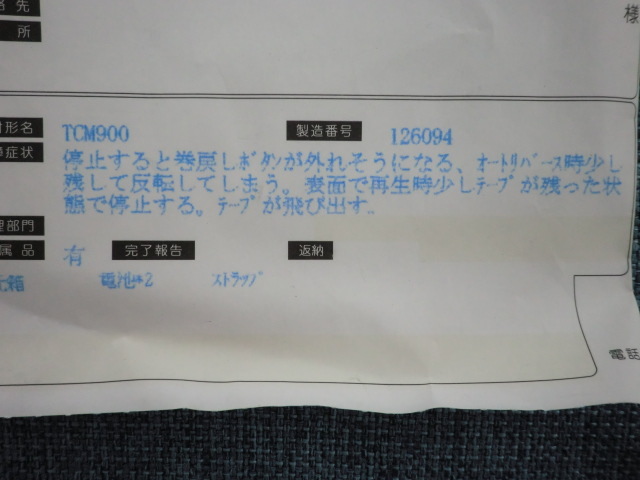 絡先
所
様
形名 TCM900 製造番号 126094
症状 停止すると巻戻しﾎﾞﾀﾝが外れそうになる、ｵｰﾄﾘﾊﾞｰｽ時少し
残して反転してしまう。変面で再生時少しﾃｰﾌﾟが残った状
態で停止する。ﾃｰﾌﾟが飛び出す.
理部門
属品 有 完了報告 返納
元箱 電池*2 ｽﾄﾗｯﾌﾟ
電話